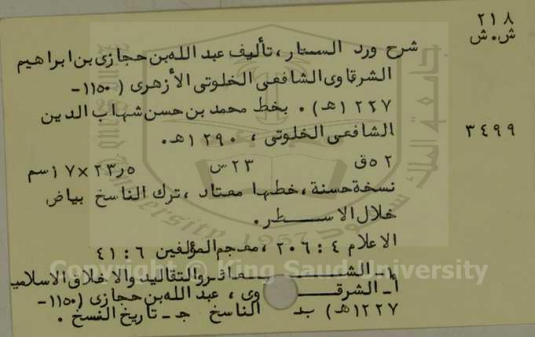 ٢١٨
ش.ش
شرح ورد الستار، تأليف عبد الله بن حجازى بن ابراهيم
الشرقاوى الشافعى الخلوتى الأزهرى (١١٥٠-
١٢٢٧هـ). بخط محمد بن حسن شهاب الدين
الشافعى الخلوتى، ١٢٩٠هـ.
٣٤٩٩
٥٢ق ٢٣س ٢٣٫٥×١٧سم
نسخة حسنة، خطها معتاد، ترك الناسخ بياض
خلال الاسطر.
الاعلام ٤: ٢٠٦، معجم المؤلفين ٦: ٤١
١- الشعائر والتقاليد والاخلاق الاسلامية
أ- الشرقاوى، عبد الله بن حجازى (١١٥٠-
١٢٢٧هـ) ب- الناسخ ج- تاريخ النسخ.
Copyright © King Saud University
جامعة الملك سعود
King Saud University 1957